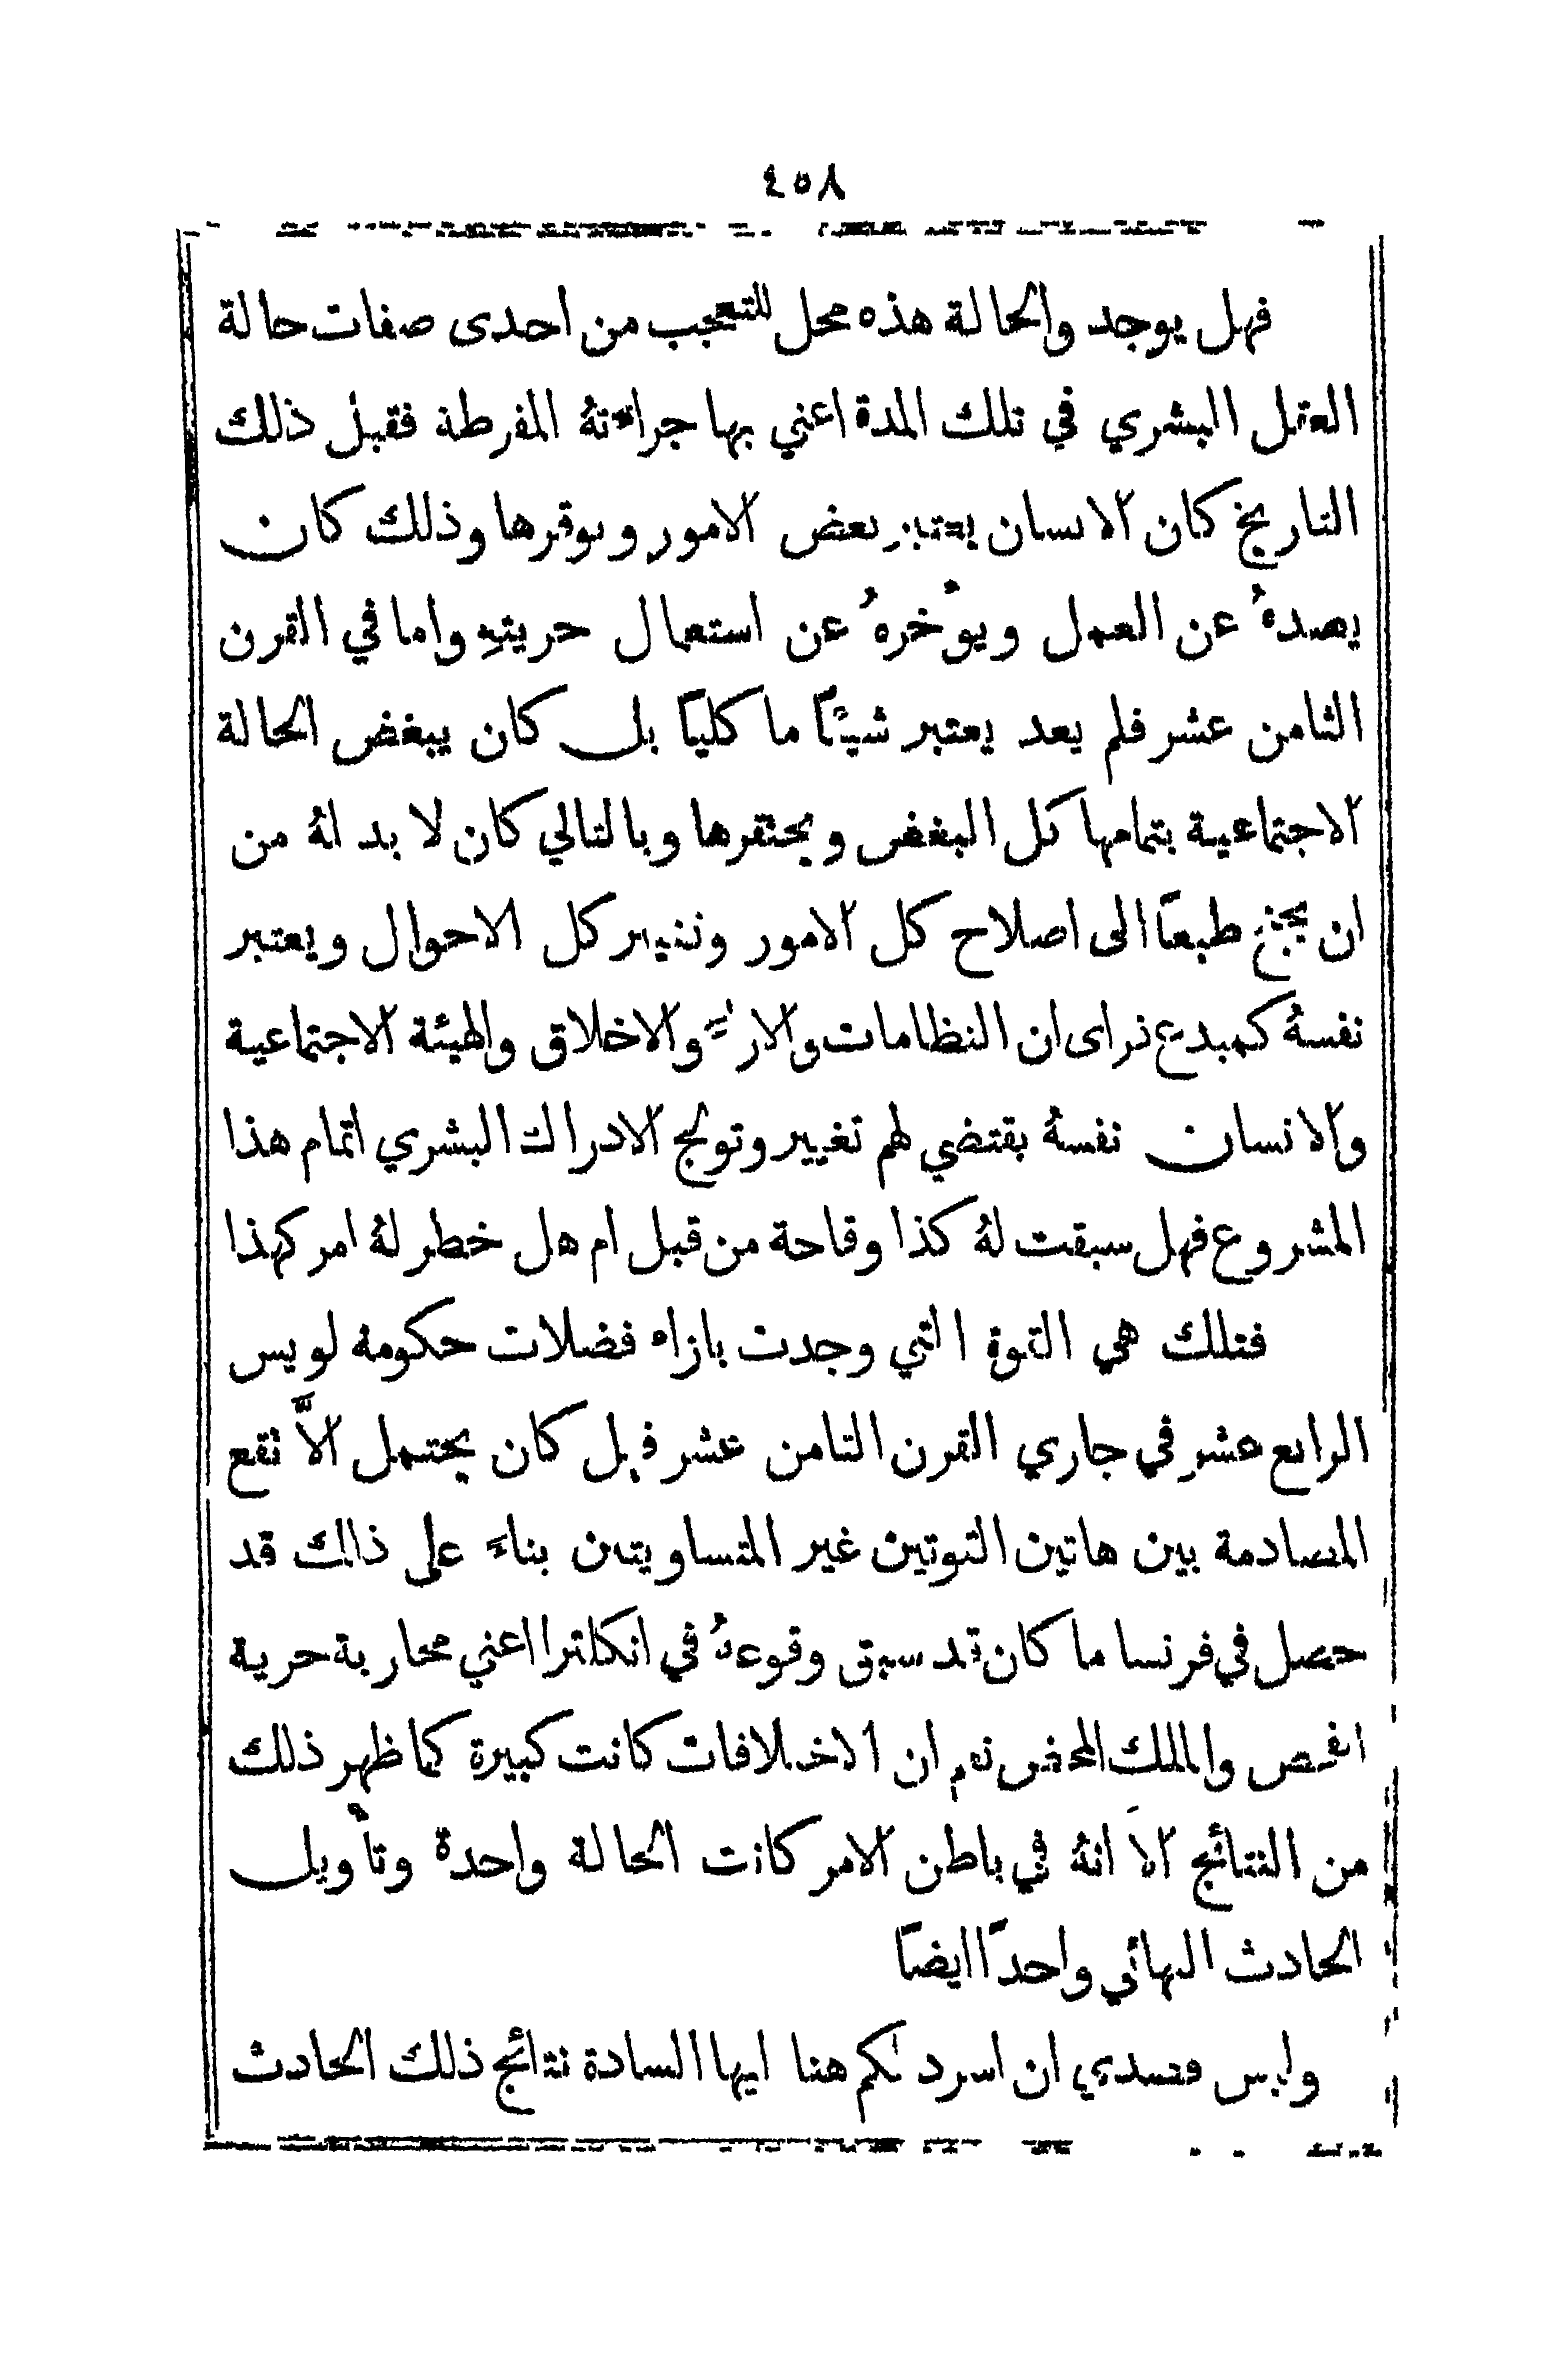 ٤٥٨
فهل يوجد والحالة هذه محل للتعجب من احدى صفات حالة
العقل البشري في تلك المدة اعني بها جراءته المفرطة فقبل ذلك
التاريخ كان الانسان يعتبر بعض الامور ويوقرها وذلك كان
يصدهُ عن العمل ويؤخرهُ عن استعمال حريتهِ واما في القرن
الثامن عشر فلم يعد يعتبر شيئًا ما كليًا بل كان يبغض الحالة
الاجتماعية بتمامها كل البغض ويحتقرها وبالتالي كان لا بد لهُ من
ان يجنح طبعًا الى اصلاح كل الامور وتغيير كل الاحوال ويعتبر
نفسهُ كمبدع فراى ان النظامات والاراء والاخلاق والهيئة الاجتماعية
والانسان نفسهُ يقتضي لهم تغيير وتولج الادراك البشري اتمام هذا
المشروع فهل سبقت لهُ كذا وقاحة من قبل ام هل خطر لهُ امر كهذا
فتلك هي القوة التي وجدت بازاء فضلات حكومة لويس
الرابع عشر في جاري القرن الثامن عشر فهل كان يحتمل الَّا تقع
المصادمة بين هاتين القوتين غير المتساويتين بناءً على ذلك قد
حصل في فرنسا ما كان قد سبق وقوعهُ في انكلترا اعني محاربة حرية
الفحص والملك المحض نعم ان الاختلافات كانت كبيرة كما ظهر ذلك
من النتائج الا انهُ في باطن الامر كانت الحالة واحدة وتأويل
الحادث النهائي واحدًا ايضًا
وليس قصدي ان اسرد لكم هنا ايها السادة نتائج ذلك الحادث